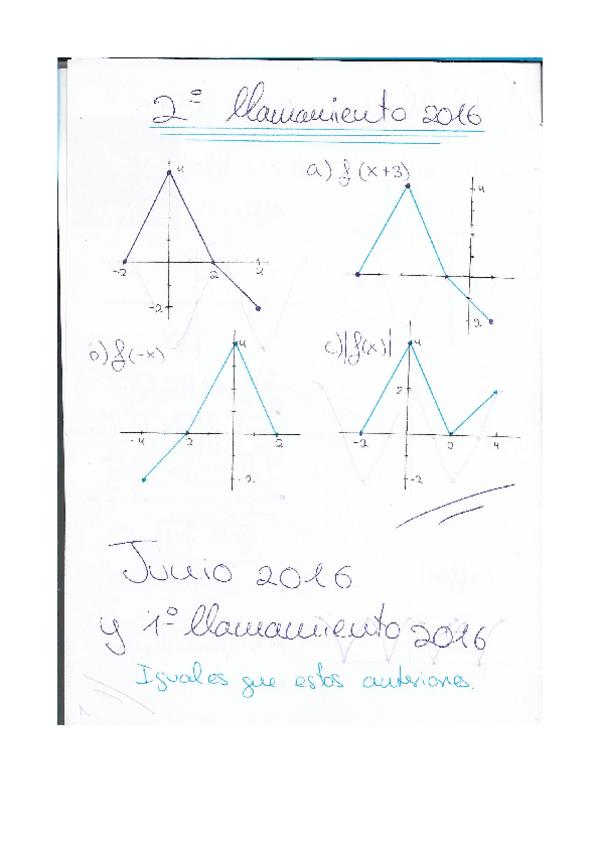 2º llamamiento 2016
4
-2 2 4
-2
a) f(x+3)
4
2
b) f(-x)
4
-4 2 2
-2
c) |f(x)|
4
2
-2 2 4
-2
Junio 2016
y 1º llamamiento 2016
Iguales que estos anteriores.